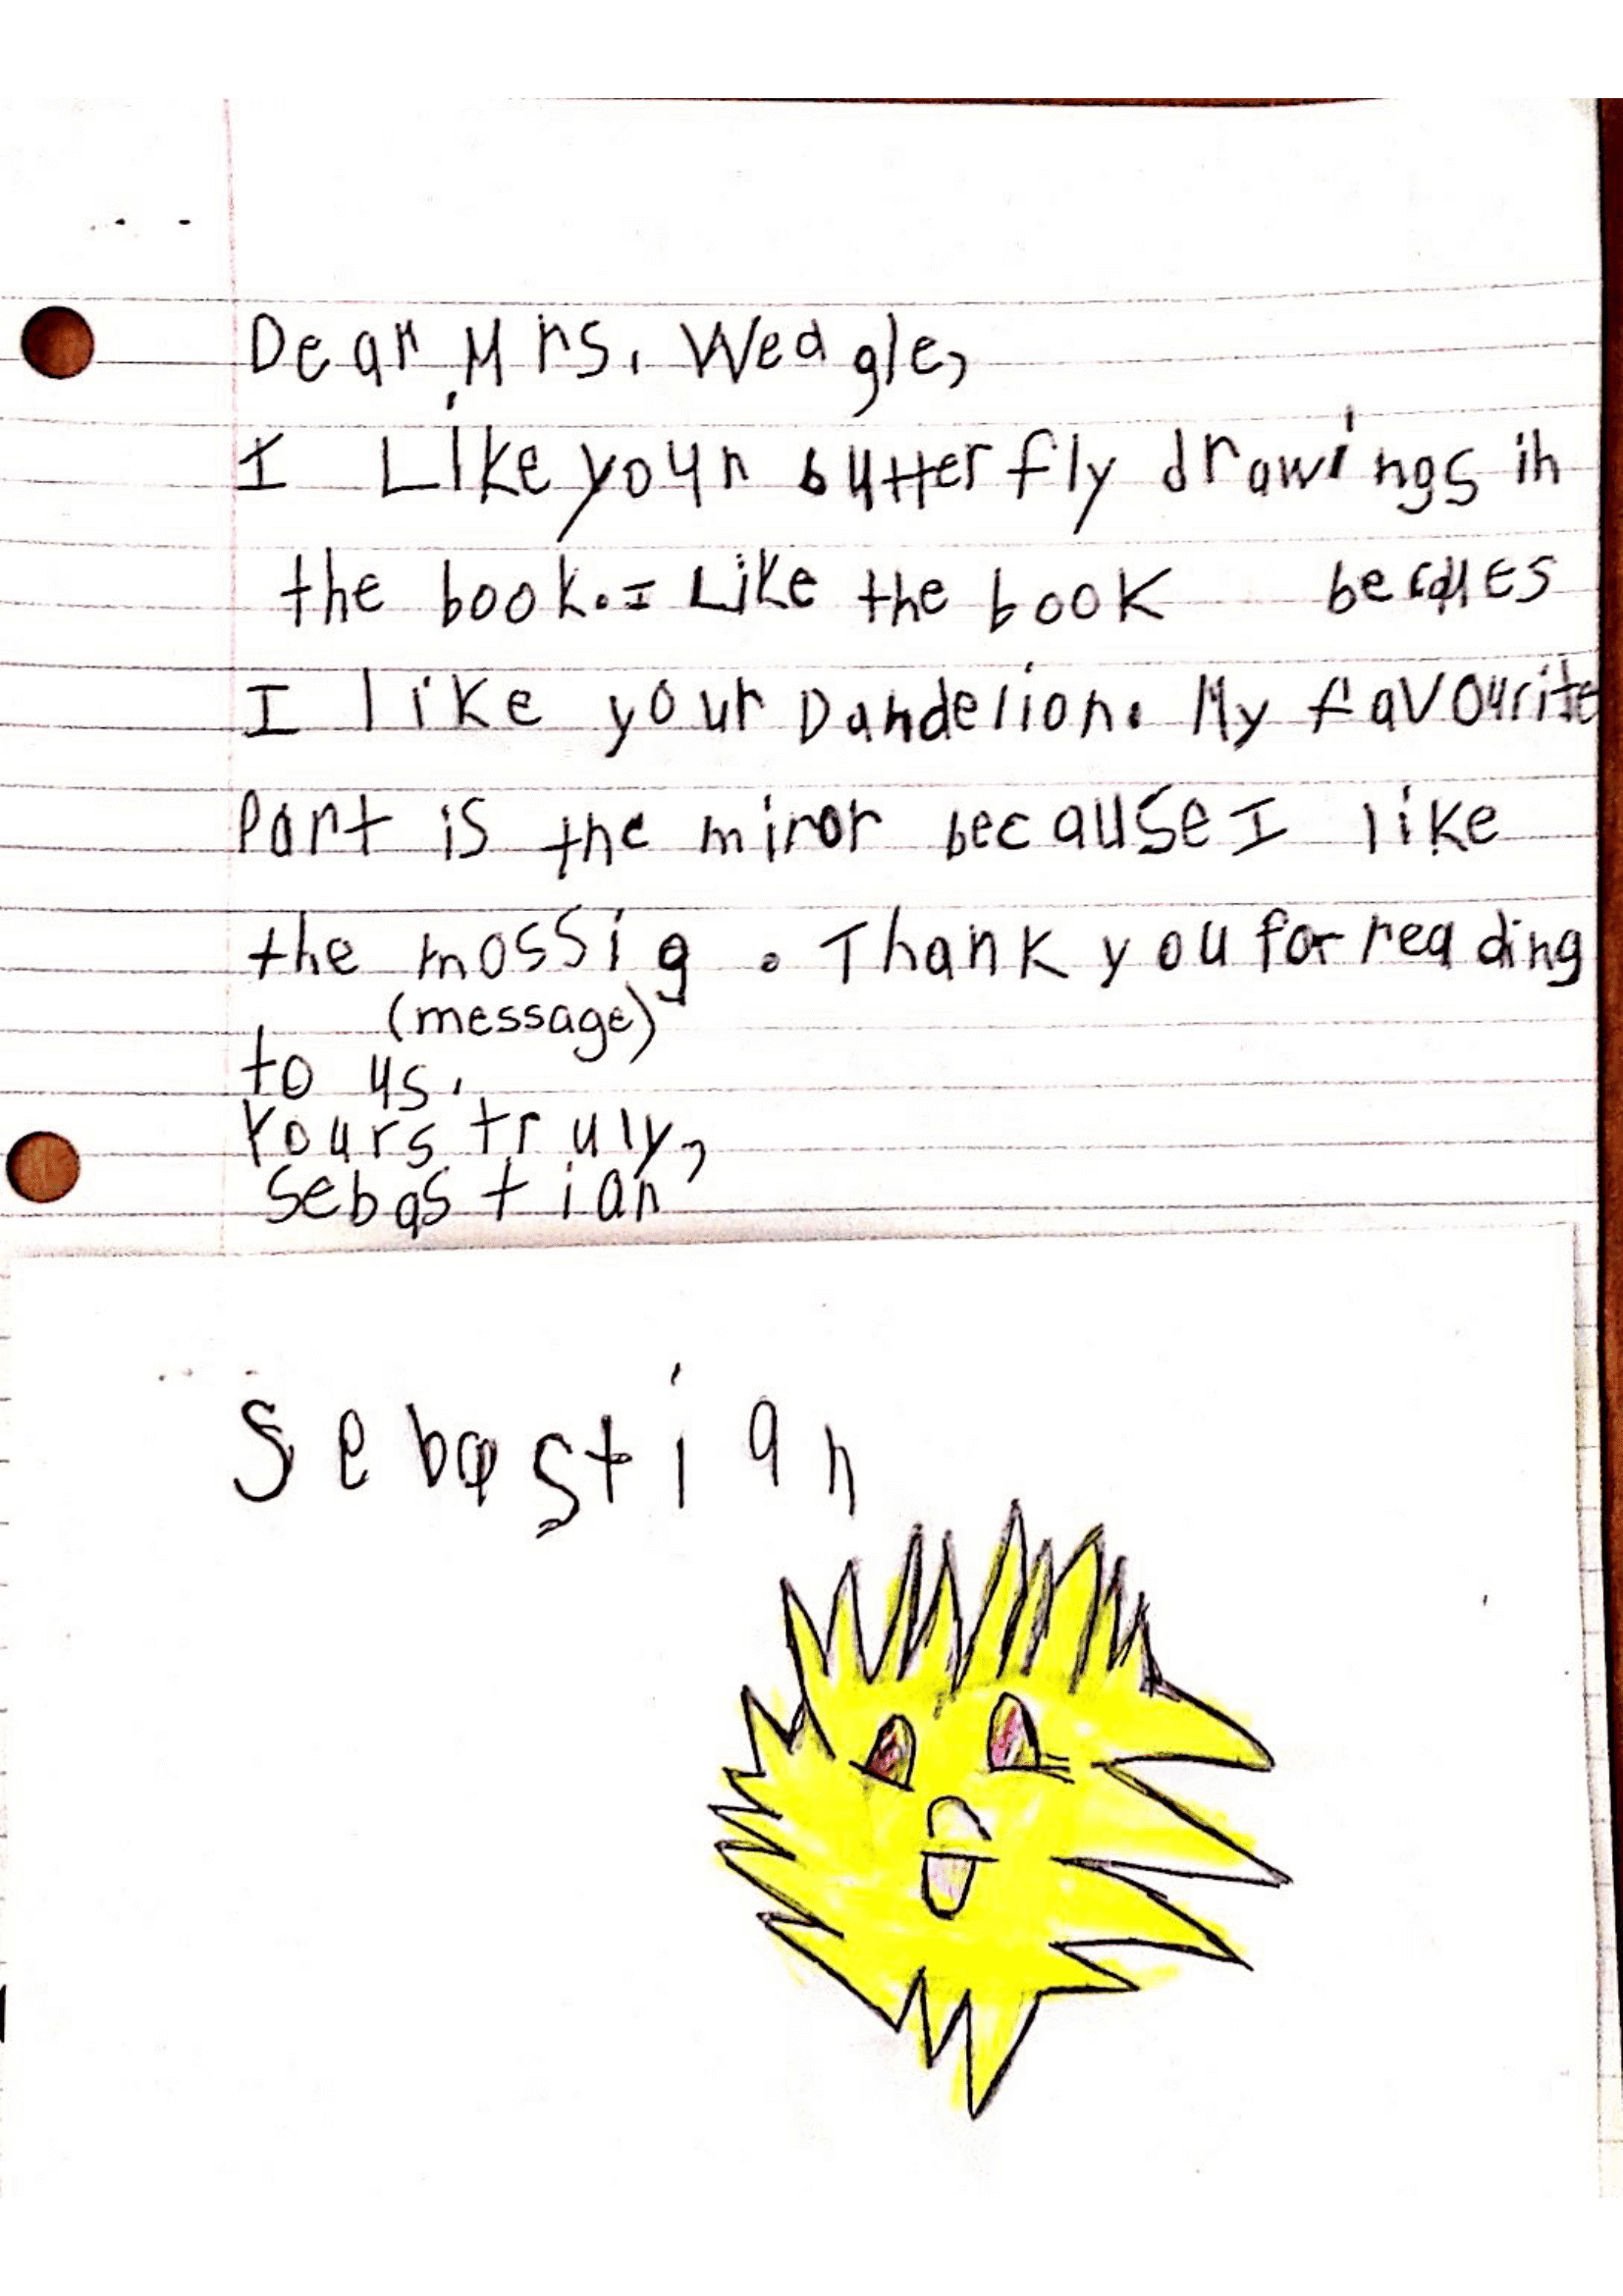 Dear Mrs. Wedgle,
I Like your butterfly drawings in
the book. I Like the book
I like your Dandelion. My favourite
Part is the miror because I like
the mossig. Thank you for reading
(message)
to us.
Yours truly,
Sebastian
Sebastian